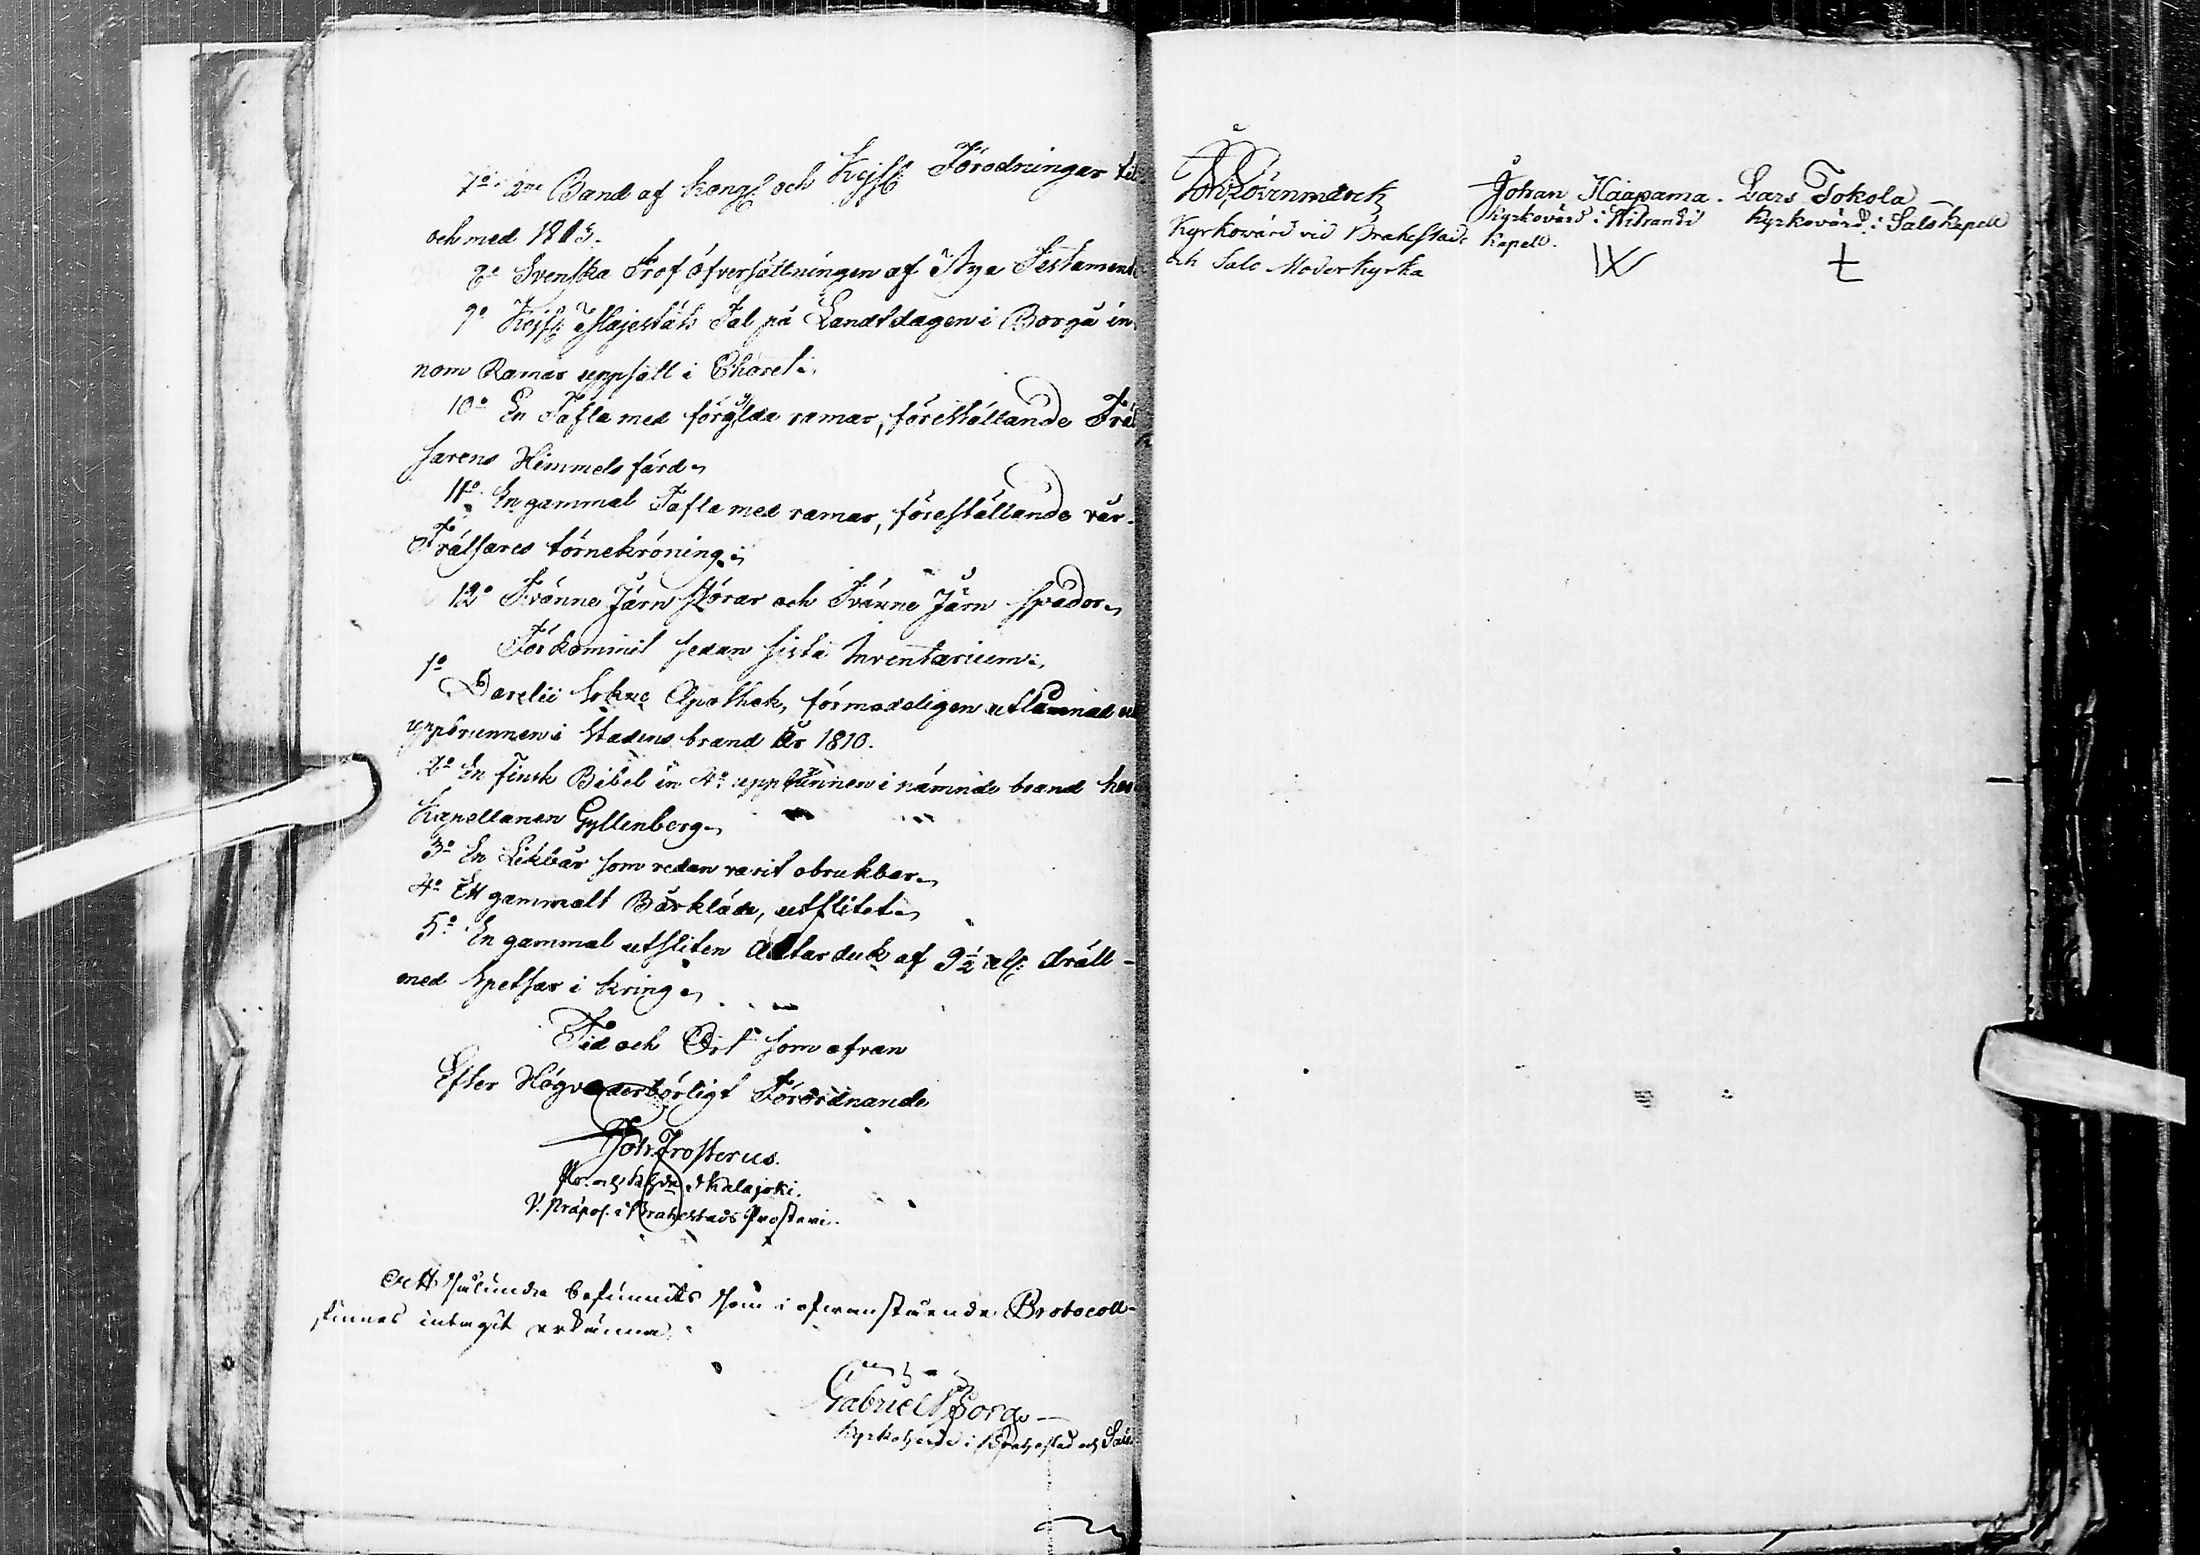 7o 2ne Band af Kongl och Kejsl: Förodningar til
och med 1813.
8o Svenska Prof öfversättningen af Nya Testament
9o Kejsl: Majestäts Tal på Landtdagen i Borgå in
nom Ramar uppsatt i Choret.
10o En Tafla med förgylda ramar, föreställande Fräl
sarens Himmelsfärd.
11o En gammal Tafla med ramar, föreställande vår
Frälsares törnekröning.
12o Tvänne Järn Störar och Tvänne Järn Spador.
Förkommit sedan sista Inventarium.
1o Darelii Sokne Apothek, förmodeligen utlånad
uppbrunnen i Stadens brand År 1810.
2o En Finsk Bibel in 4o uppbrunnen i nämnde brand hos
Kapellanen Gyllenberg.
3o En Likbår som redan varit obrukbar.
4o Ett gammalt Bårkläde, utslitet.
5o En gammal utsliten Altarduk af 9 1/2 aln: dräll
med Spetsar i kring.
Tid och Ort som ofvan
Efter Högvederbörligt Förordnande
Joh: Frosterus.
i Kalajoki.
V. Præpos. i Brahestads Prosteri.
Att sålunda befunnits som i ofvanstående Protocoll
finnes intagit erkänna.
Gabriel Borg
Kyrkoherde i Brahestad och Salo
Kyrkovärd vid Brahestads
och Salo Moderkyrka
Johan Haapama.
Kyrkovärd i
Kapell.
Lars Tokola
Kyrkovärd i Salo Kapell